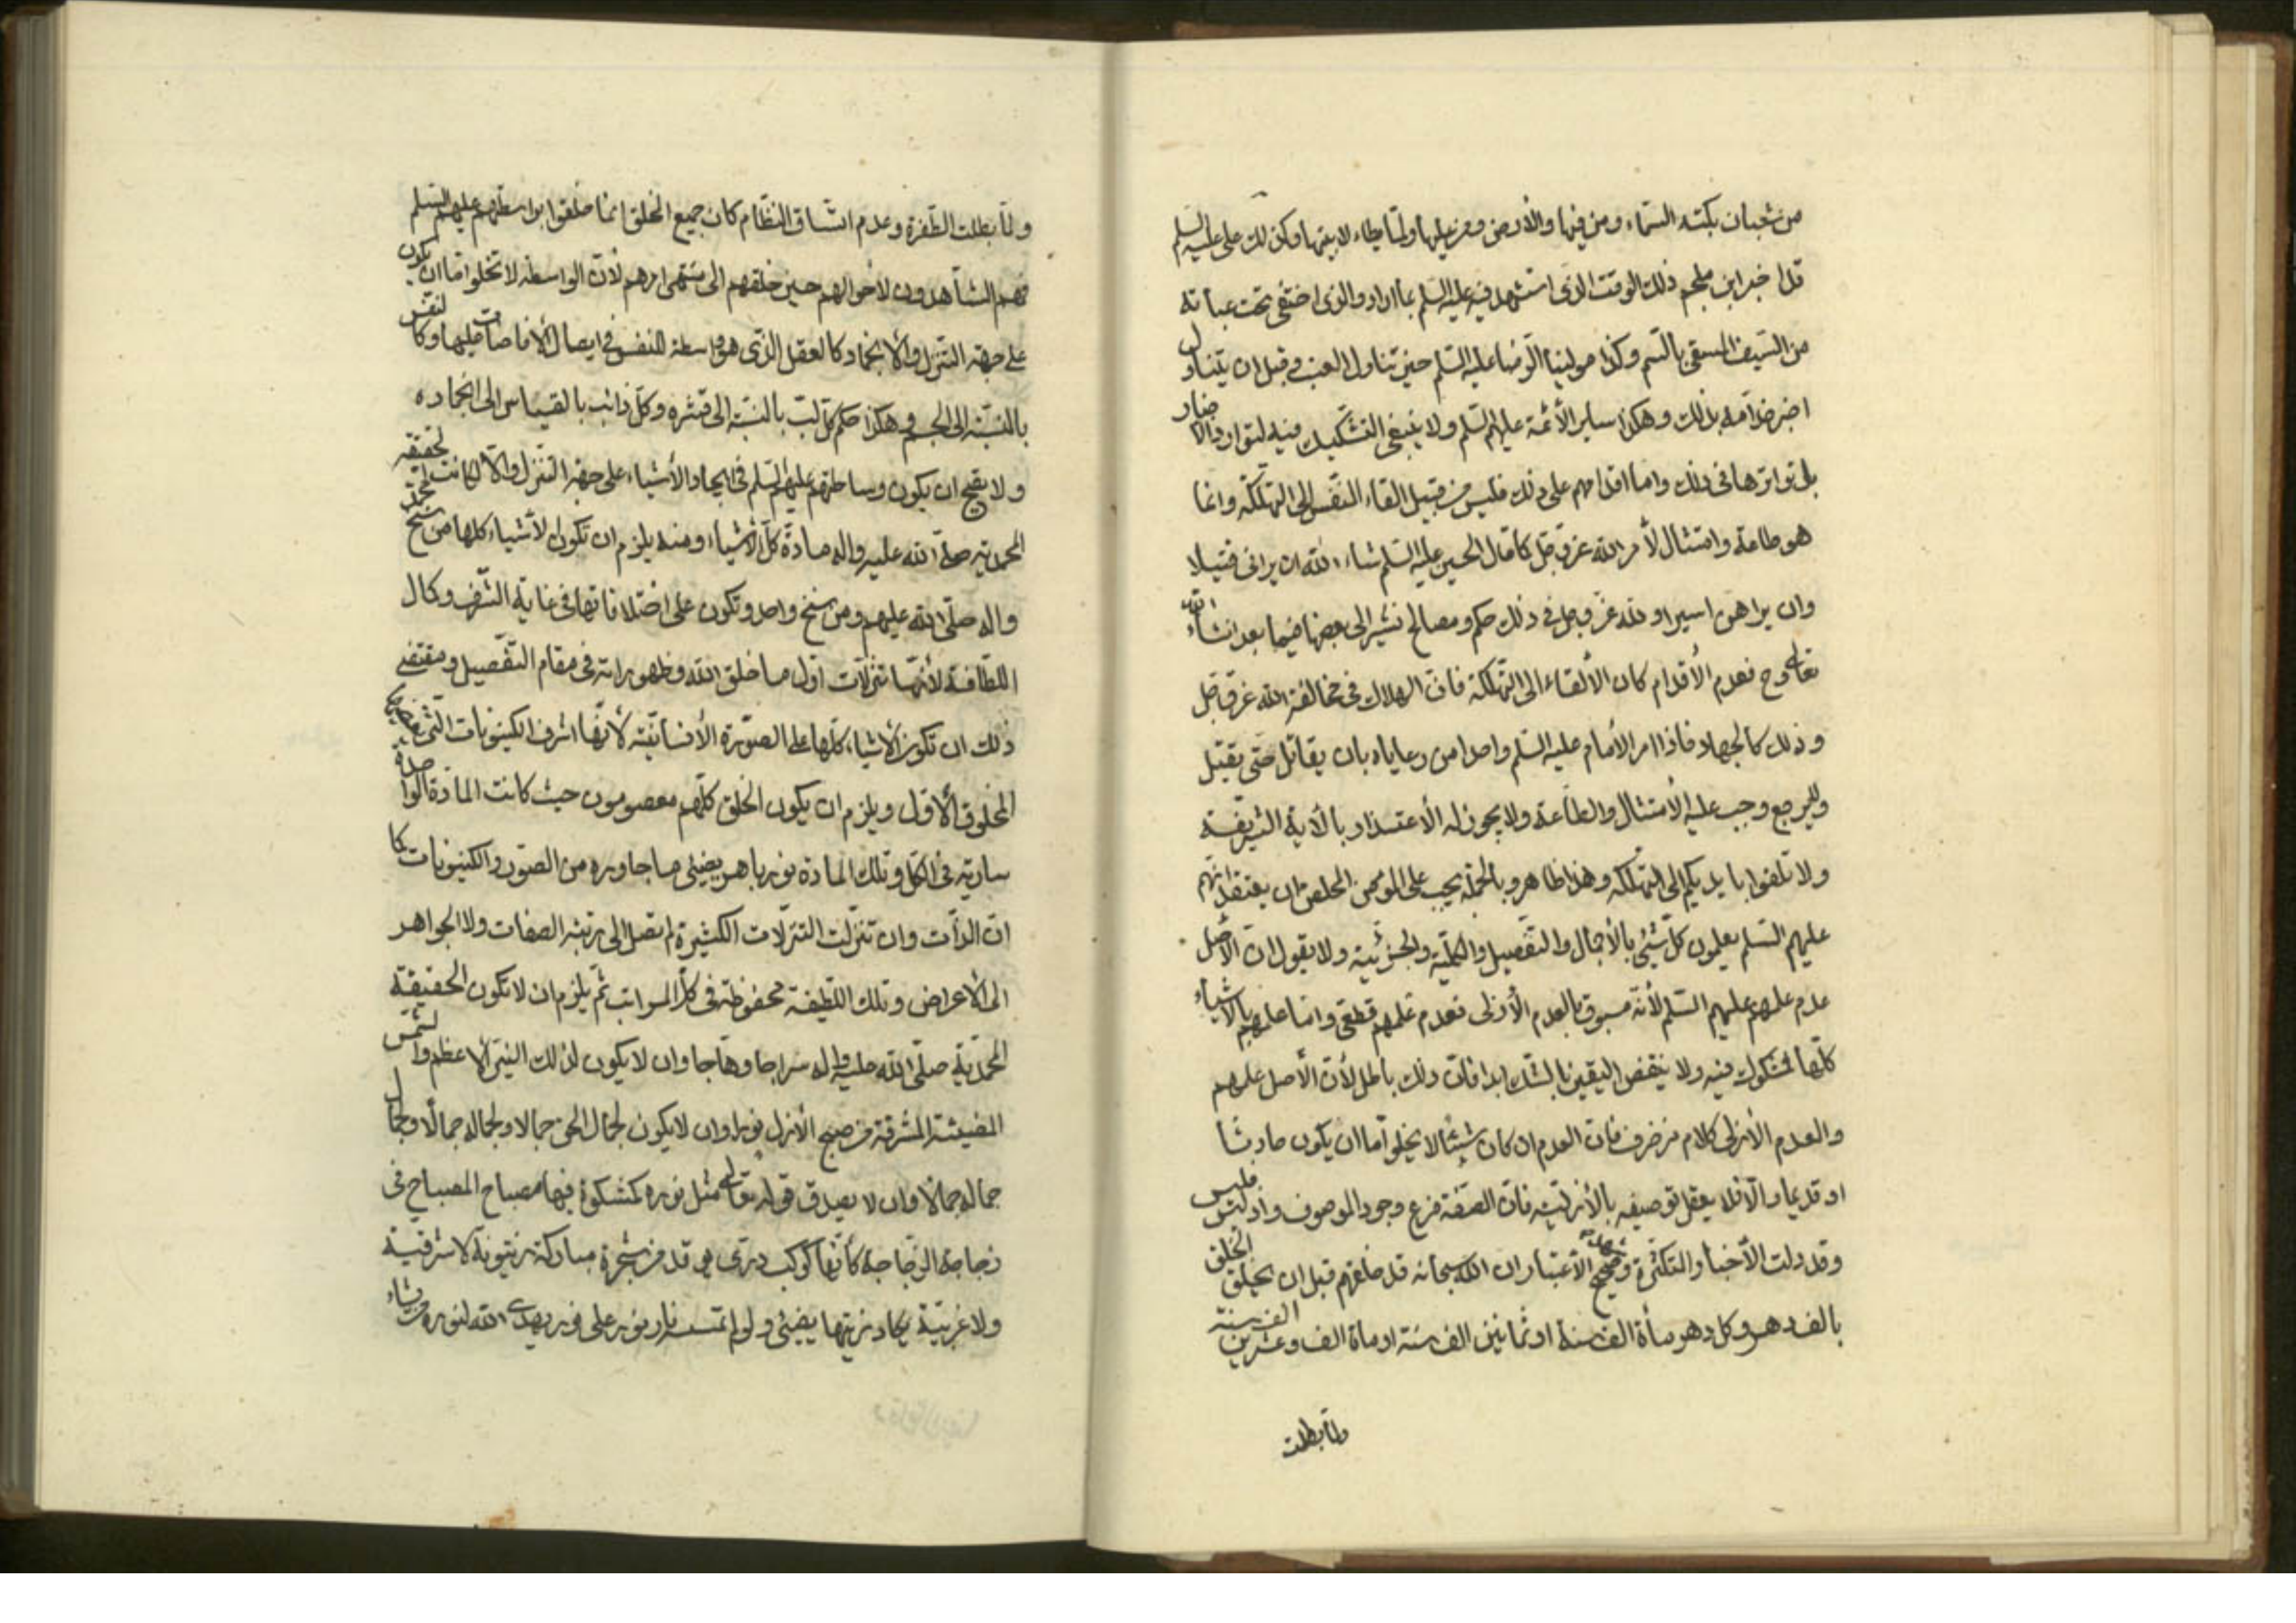 من شعبان بكته السماء ومن فيها والأرض ومن عليها ولما يطاء لابيتها وكذلك علي عليه السلم
قد اخبر ابن ملجم ذلك الوقت الذي استشهد فيه عليه السلم بما اراد والذي اختفى تحت عبائه
من السيف المسقى بالسم وكذا مولينا الرضا عليه السلم حين تناول العنب وقبل ان يتناول
اخبر خدامه بذلك وهكذا ساير الأئمة عليهم السلم ولا ينبغي التشكيك فيه لتوارد الاخبار
بل تواترها في ذلك واما اقدامهم على ذلك فليس من قبيل القاء النفس الى التهلكة وانما
هو طاعة وامتثال لأمر الله عز وجل كما قال الحسين عليه السلم شاء الله ان يراني قتيلا
وان يراهن اسيرا ولله عز وجل في ذلك حكم ومصالح نشير الى بعضها فيما بعد انشاء الله
تعالى وح فعدم الأقدام كان الألقاء الى التهلكة فان الهلاك في مخالفة الله عز وجل
وذلك كالجهاد فاذا امر الأمام عليه السلم واحدا من رعاياه بان يقاتل حتى يقتل
وليرجع وجب عليه الأمتثال والطاعة ولا يجوز له الأعتذار بالأية الشريفة
ولا تلقوا بايديكم الى التهلكة وهذا ظاهر وبالجملة يجب على المؤمن المخلص ان يعتقد انهم
عليهم السلم يعلمون كل شيئ بالأجمال والتفصيل والكلية والجزئية ولا يقول ان الأصل
عدم علمهم عليهم السلم لأنه مسبوق بالعدم الأزلى فعدم علمهم قطعي وانما علمهم بالأشياء
كلها مشكوك فيه ولا ينقض اليقين بالشك ابدا فان ذلك باطل لأن الأصل علمهم
والعدم الأزلى كلام مزخرف فان العدم ان كان شيئا لا يخلو اما ان يكون حادثا
او قديما والا فلا يعقل توصيفه بالأزلية فان الصفة فرع وجود الموصوف واذ ليس فليس
وقد دلت الأخبار المتكثرة وصحيح الأعتبار ان الله سبحانه قد خلقهم قبل ان يخلق الخلق
بالف دهر وكل دهر مأة الف سنة او ثمانين الف سنة او مأة الف وعشرين الف سنة
ولما بطلت
ولما بطلت الطفرة وعدم اتساق النظام كان جميع الخلق انما خلقوا بواسطتهم عليهم السلم
فهم الشاهدون لأحوالهم حين خلقهم الى منتهى امرهم لأن الواسطة لا تخلوا اما ان يكون
على جهة التنزل والأنجماد كالعقل الذي هو واسطة للنفس في ايصال الأفاضات عليها وكالنفس
بالنسبة الى الجسم وهكذا حكم كل لب بالنسبة الى قشره وكل ذائب بالقياس الى انجماده
ولا يصح ان يكون وساطتهم عليهم السلم في ايجاد الأشياء على جهة التنزل والا لكانت الحقيقة
المحمدية صلى الله عليه واله مادة كل الأشياء ومنه يلزم ان تكون الأشياء كلها من سنخ محمد
واله صلى الله عليهم ومن سنخ واحد وتكون على اختلافاتها في غاية الشرف وكمال
اللطافة لأنها تنزلات اول ما خلق الله وظهوراته في مقام التفصيل ومقتضى
ذلك ان تكون الأشياء كلها على الصورة الأنسانية لأنها اشرف الكينونات التي
المخلوق الأول ويلزم ان يكون الخلق كلهم معصومون حيث كانت المادة الواحدة
سارية في الكل وتلك المادة نور باهر يضيئ ما جاوره من الصور والكينونات كما
ان الذات وان تنزلت التنزلات الكثيرة لم تصل الى رتبة الصفات ولا الجواهر
الى الأعراض وتلك اللطيفة محفوظة في كل المراتب ثم يلزم ان لا تكون الحقيقة
المحمدية صلى الله عليه واله سراجا وهاجا وان لا يكون لذلك النير الأعظم والشمس
المضيئة المشرقة من صبح الأزل نورا وان لا يكون لجمال الحق جمالا ولجماله جمالا ولجمال
جماله جمالا وان لا يصدق قوله تعالى مثل نوره كمشكوة فيها مصباح المصباح في
زجاجة الزجاجة كأنها كوكب دري يوقد من شجرة مباركة زيتونة لا شرقية
ولا غربية يكاد زيتها يضيئ ولو لم تمسسه نار نور على نور يهدي الله لنوره من يشاء